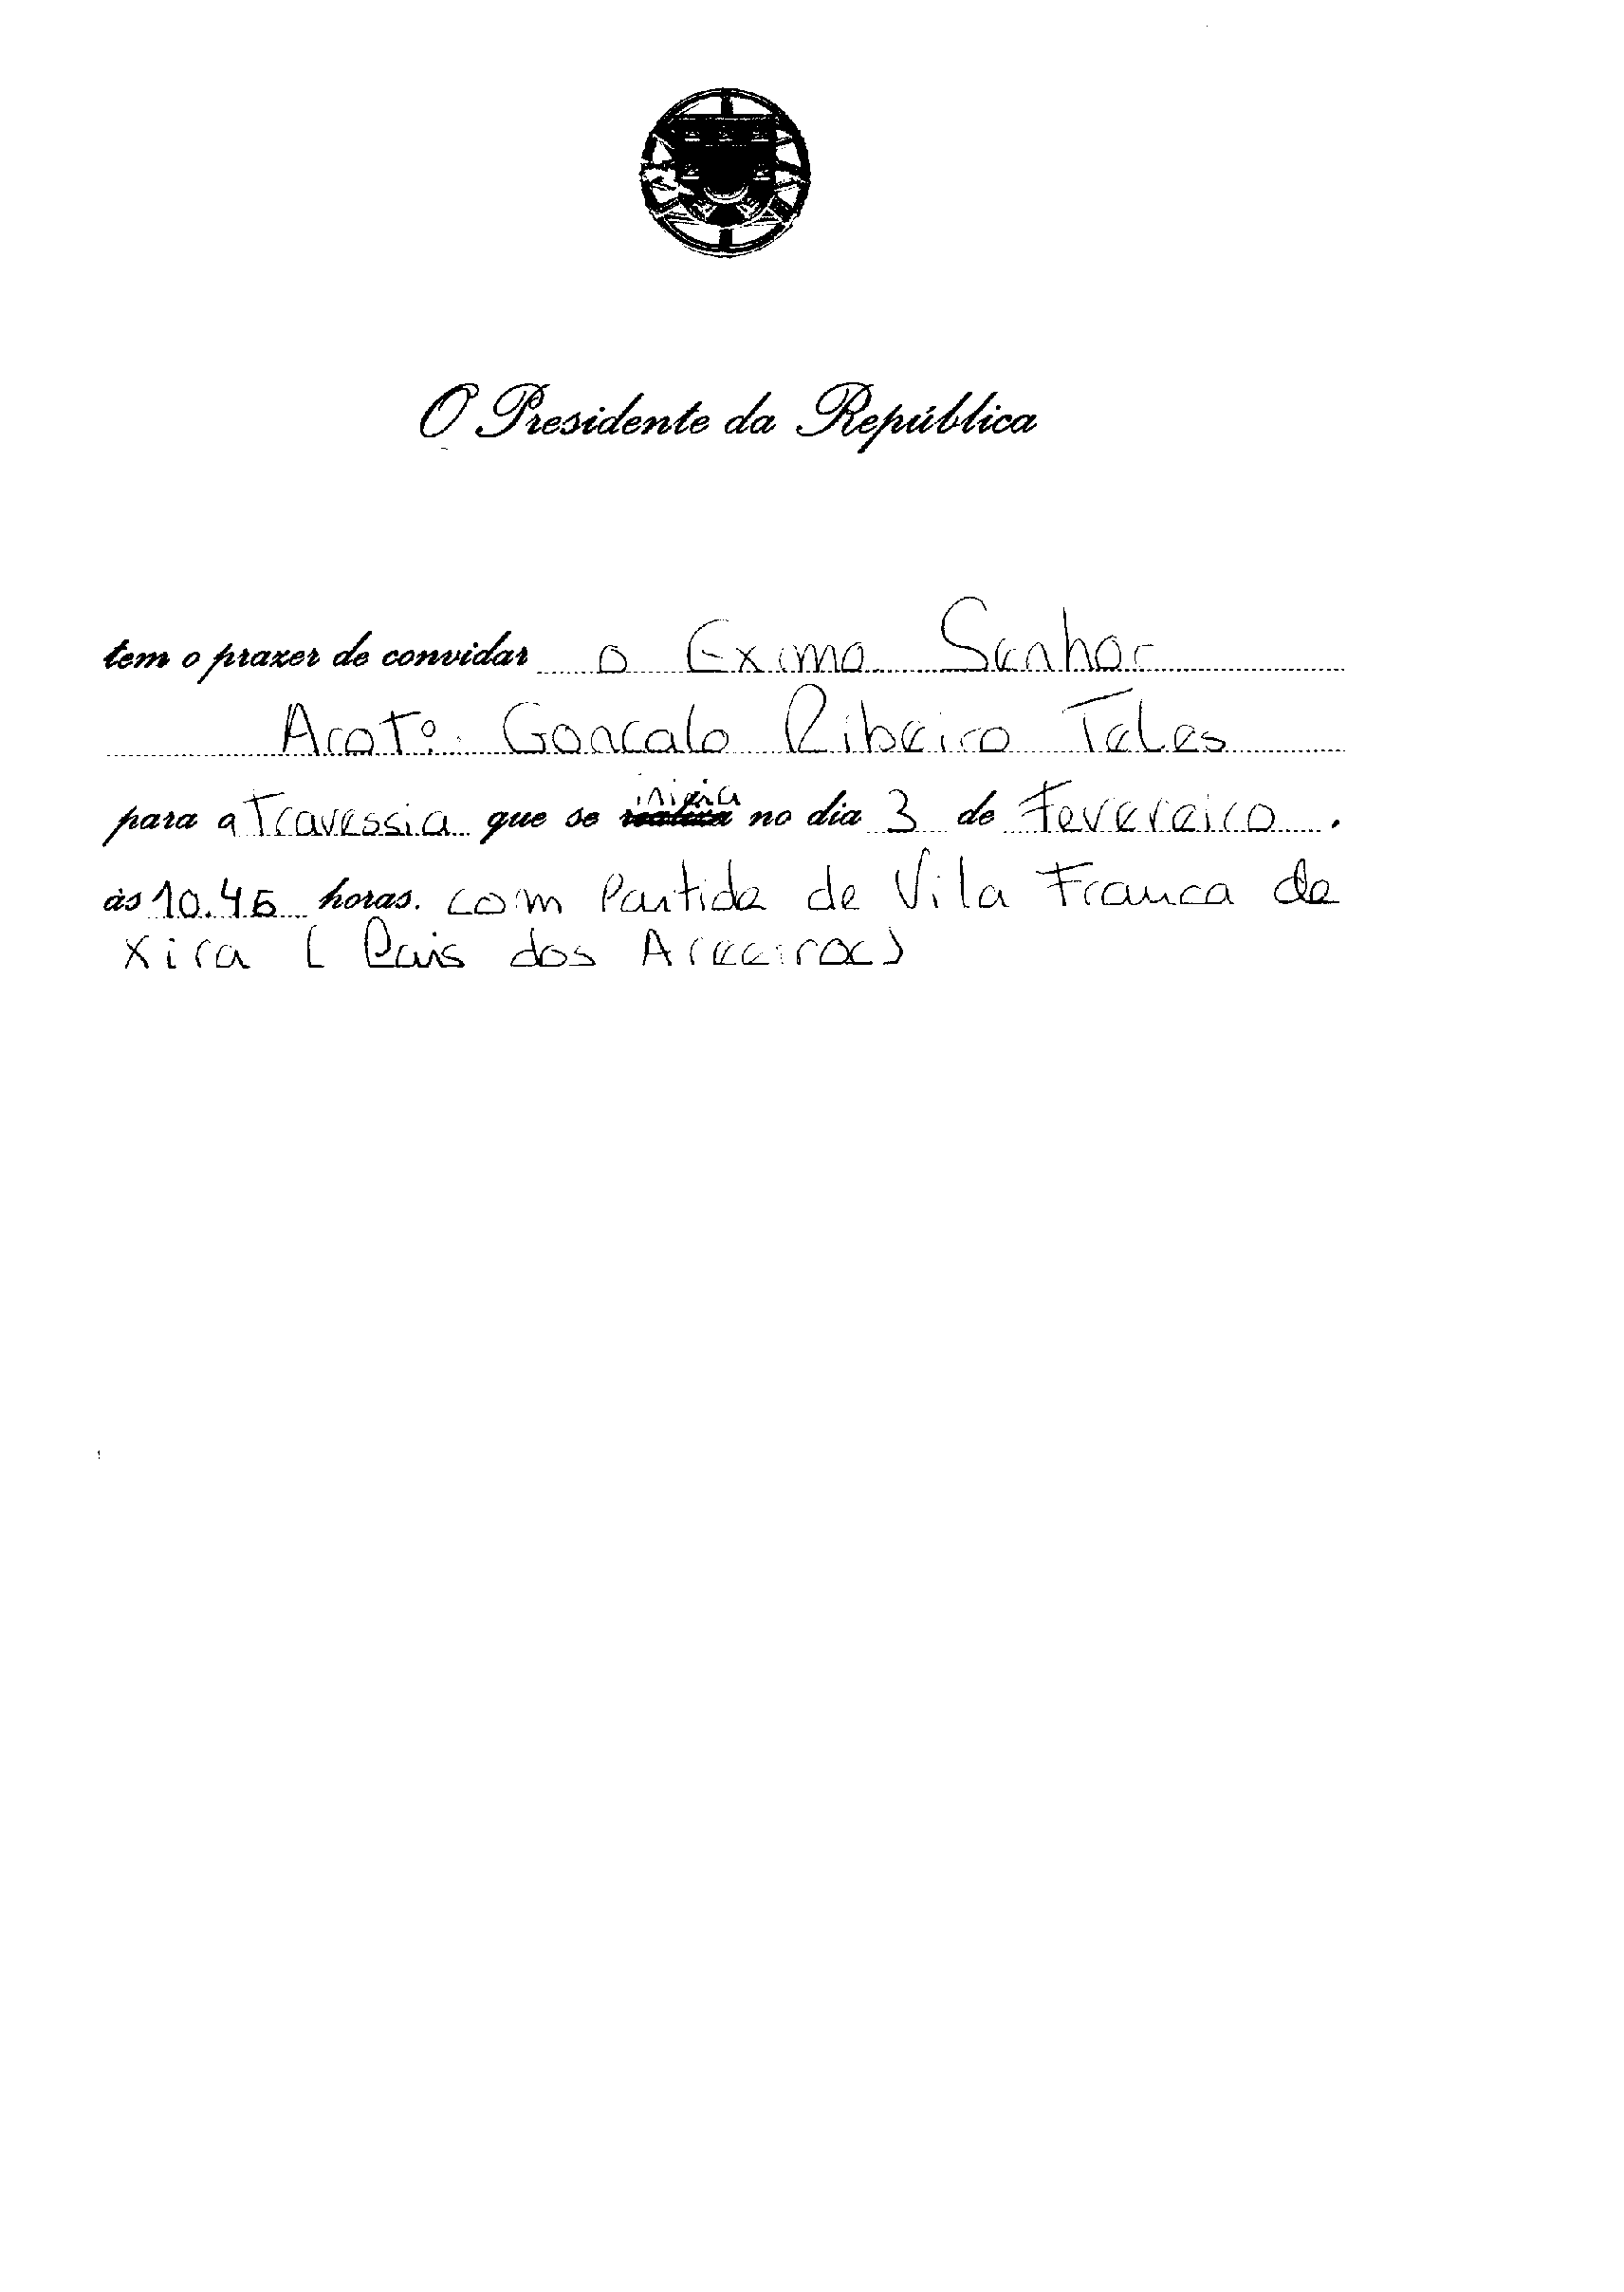 O Presidente da República
tem o prazer de convidar o Exmo Senhor
Arqtº. Gonçalo Ribeiro Teles
para a Travessia que se realiza inicia no dia 3 de Fevereiro,
às 10.45 horas. com Partida de Vila Franca de
Xira ( Cais dos Areeiros)